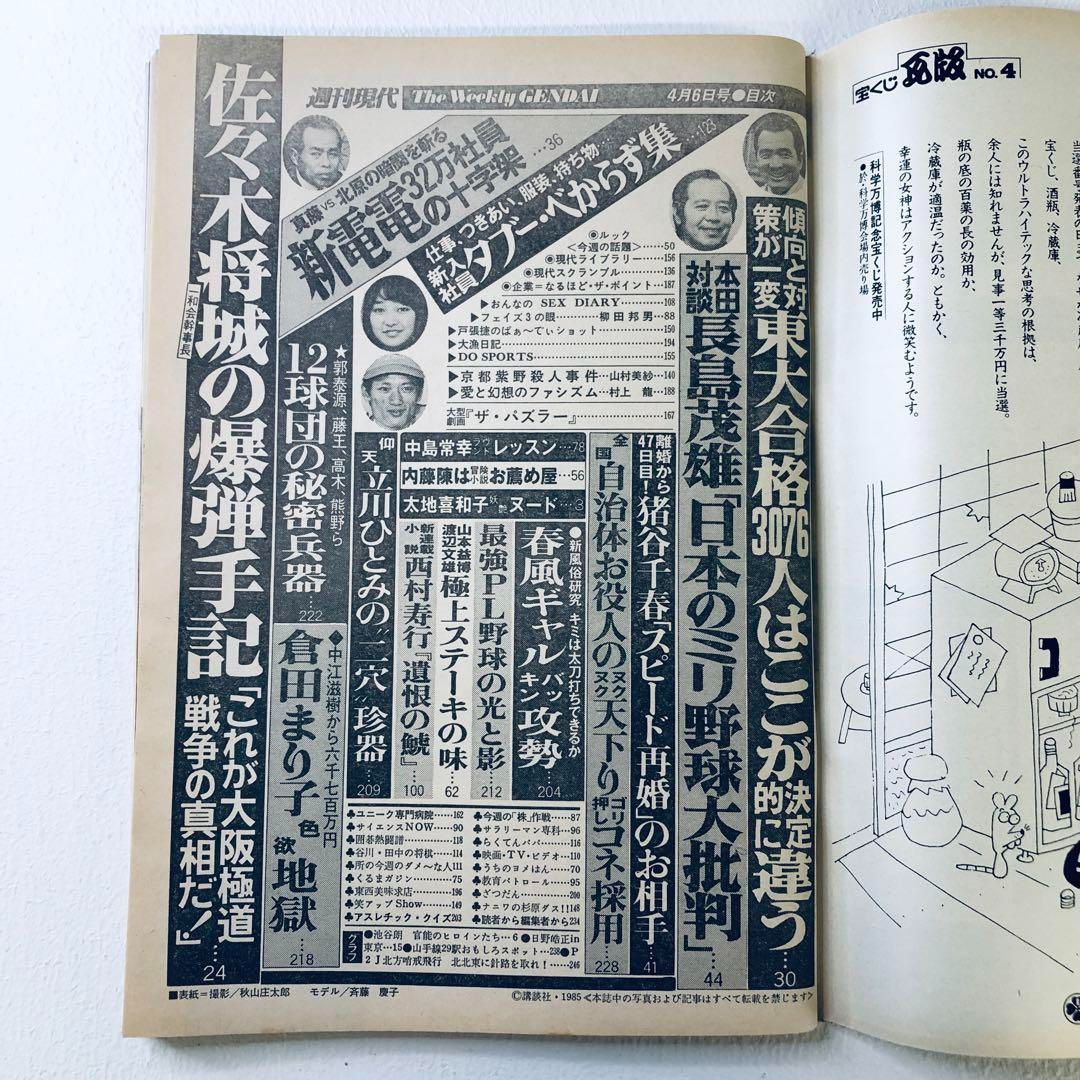 週刊現代 The Weekly GENDAI 4月6日号●目次
傾向と対策が一変 東大合格3076人はここが決定的に違う…30
本田対談 長島茂雄「日本のミリ野球大批判」…44
真藤vs.北原の暗闘を斬る
新電電32万社員の十字架…36
仕事、つきあい、服装、持ち物…
新入社員タブー・べからず集…123
●ルック
<今週の話題>……50
●現代ライブラリー……156
●現代スクランブル……136
●企業=なるほど・ザ・ポイント…187
▶おんなの SEX DIARY……108
▶フェイズ3の眼……柳田邦男…88
▶戸張捷のぱぁ〜てぃショット……150
▶大漁日記……194
▶DO SPORTS……155
▶京都紫野殺人事件…山村美紗…140
▶愛と幻想のファシズム…村上 龍…188
大型劇画『ザ・パズラー』……167
離婚から47日目!猪谷千春「スピード再婚」のお相手…41
全国自治体お役人のヌクヌク天下りゴリ押しコネ採用…228
中島常幸ラウンドレッスン…78
内藤陳は冒険小説お薦め屋…56
太地喜和子妖艶ヌード…3
●新風俗研究 キミは太刀打ちできるか
春風ギャルバッキン攻勢…204
最強PL野球の光と影…212
山本益博 渡辺文雄 極上ステーキの味…62
新連載小説 西村寿行『遺恨の鯱』…100
仰天 立川ひとみの“二穴”珍器…209
★郭泰源、藤王、高木、熊野ら
12球団の秘密兵器…222
◆中江滋樹から六千七百万円
倉田まり子色欲地獄…218
佐々木将城の爆弾手記「これが大阪極道戦争の真相だ!」…24
一和会幹事長
♣今週の「株」作戦……87
♣サラリーマン専科……96
♣らくてんパパ……116
♣映画・TV・ビデオ……110
♣うちのヨメはん……70
♣教育パトロール……95
♣ざつだん……200
♣ナニワの杉原ダス!!148
♣読者から編集者から234
♣ユニーク専門病院……162
♣サイエンスNOW……90
♣囲碁熱闘譜……118
♣谷川・田中の将棋……114
♣所の今週のダメ〜な人111
♣くるまガジン……75
♣東西美味求店……196
♣笑アップShow……149
♣アスレチック・クイズ203
グラフ
●池谷朗 官能のヒロインたち…6●日野皓正in
東京…15●山手線29駅おもしろスポット…238●P
2J北方哨戒飛行 北北東に針路を取れ!……246
■表紙=撮影/秋山庄太郎 モデル/斉藤 慶子
©講談社・1985<本誌中の写真および記事はすべて転載を禁じます>
宝くじ瓦版 NO.4
宝くじ、酒瓶、冷蔵庫、
このウルトラハイテックな思考の根拠は、
余人には知れませんが、見事一等三千万円に当選。
瓶の底の百薬の長の効用か、
冷蔵庫が適温だったのか。ともかく、
幸運の女神はアクションする人に微笑むようです。
科学万博記念宝くじ発売中
●於・科学万博会場内売り場